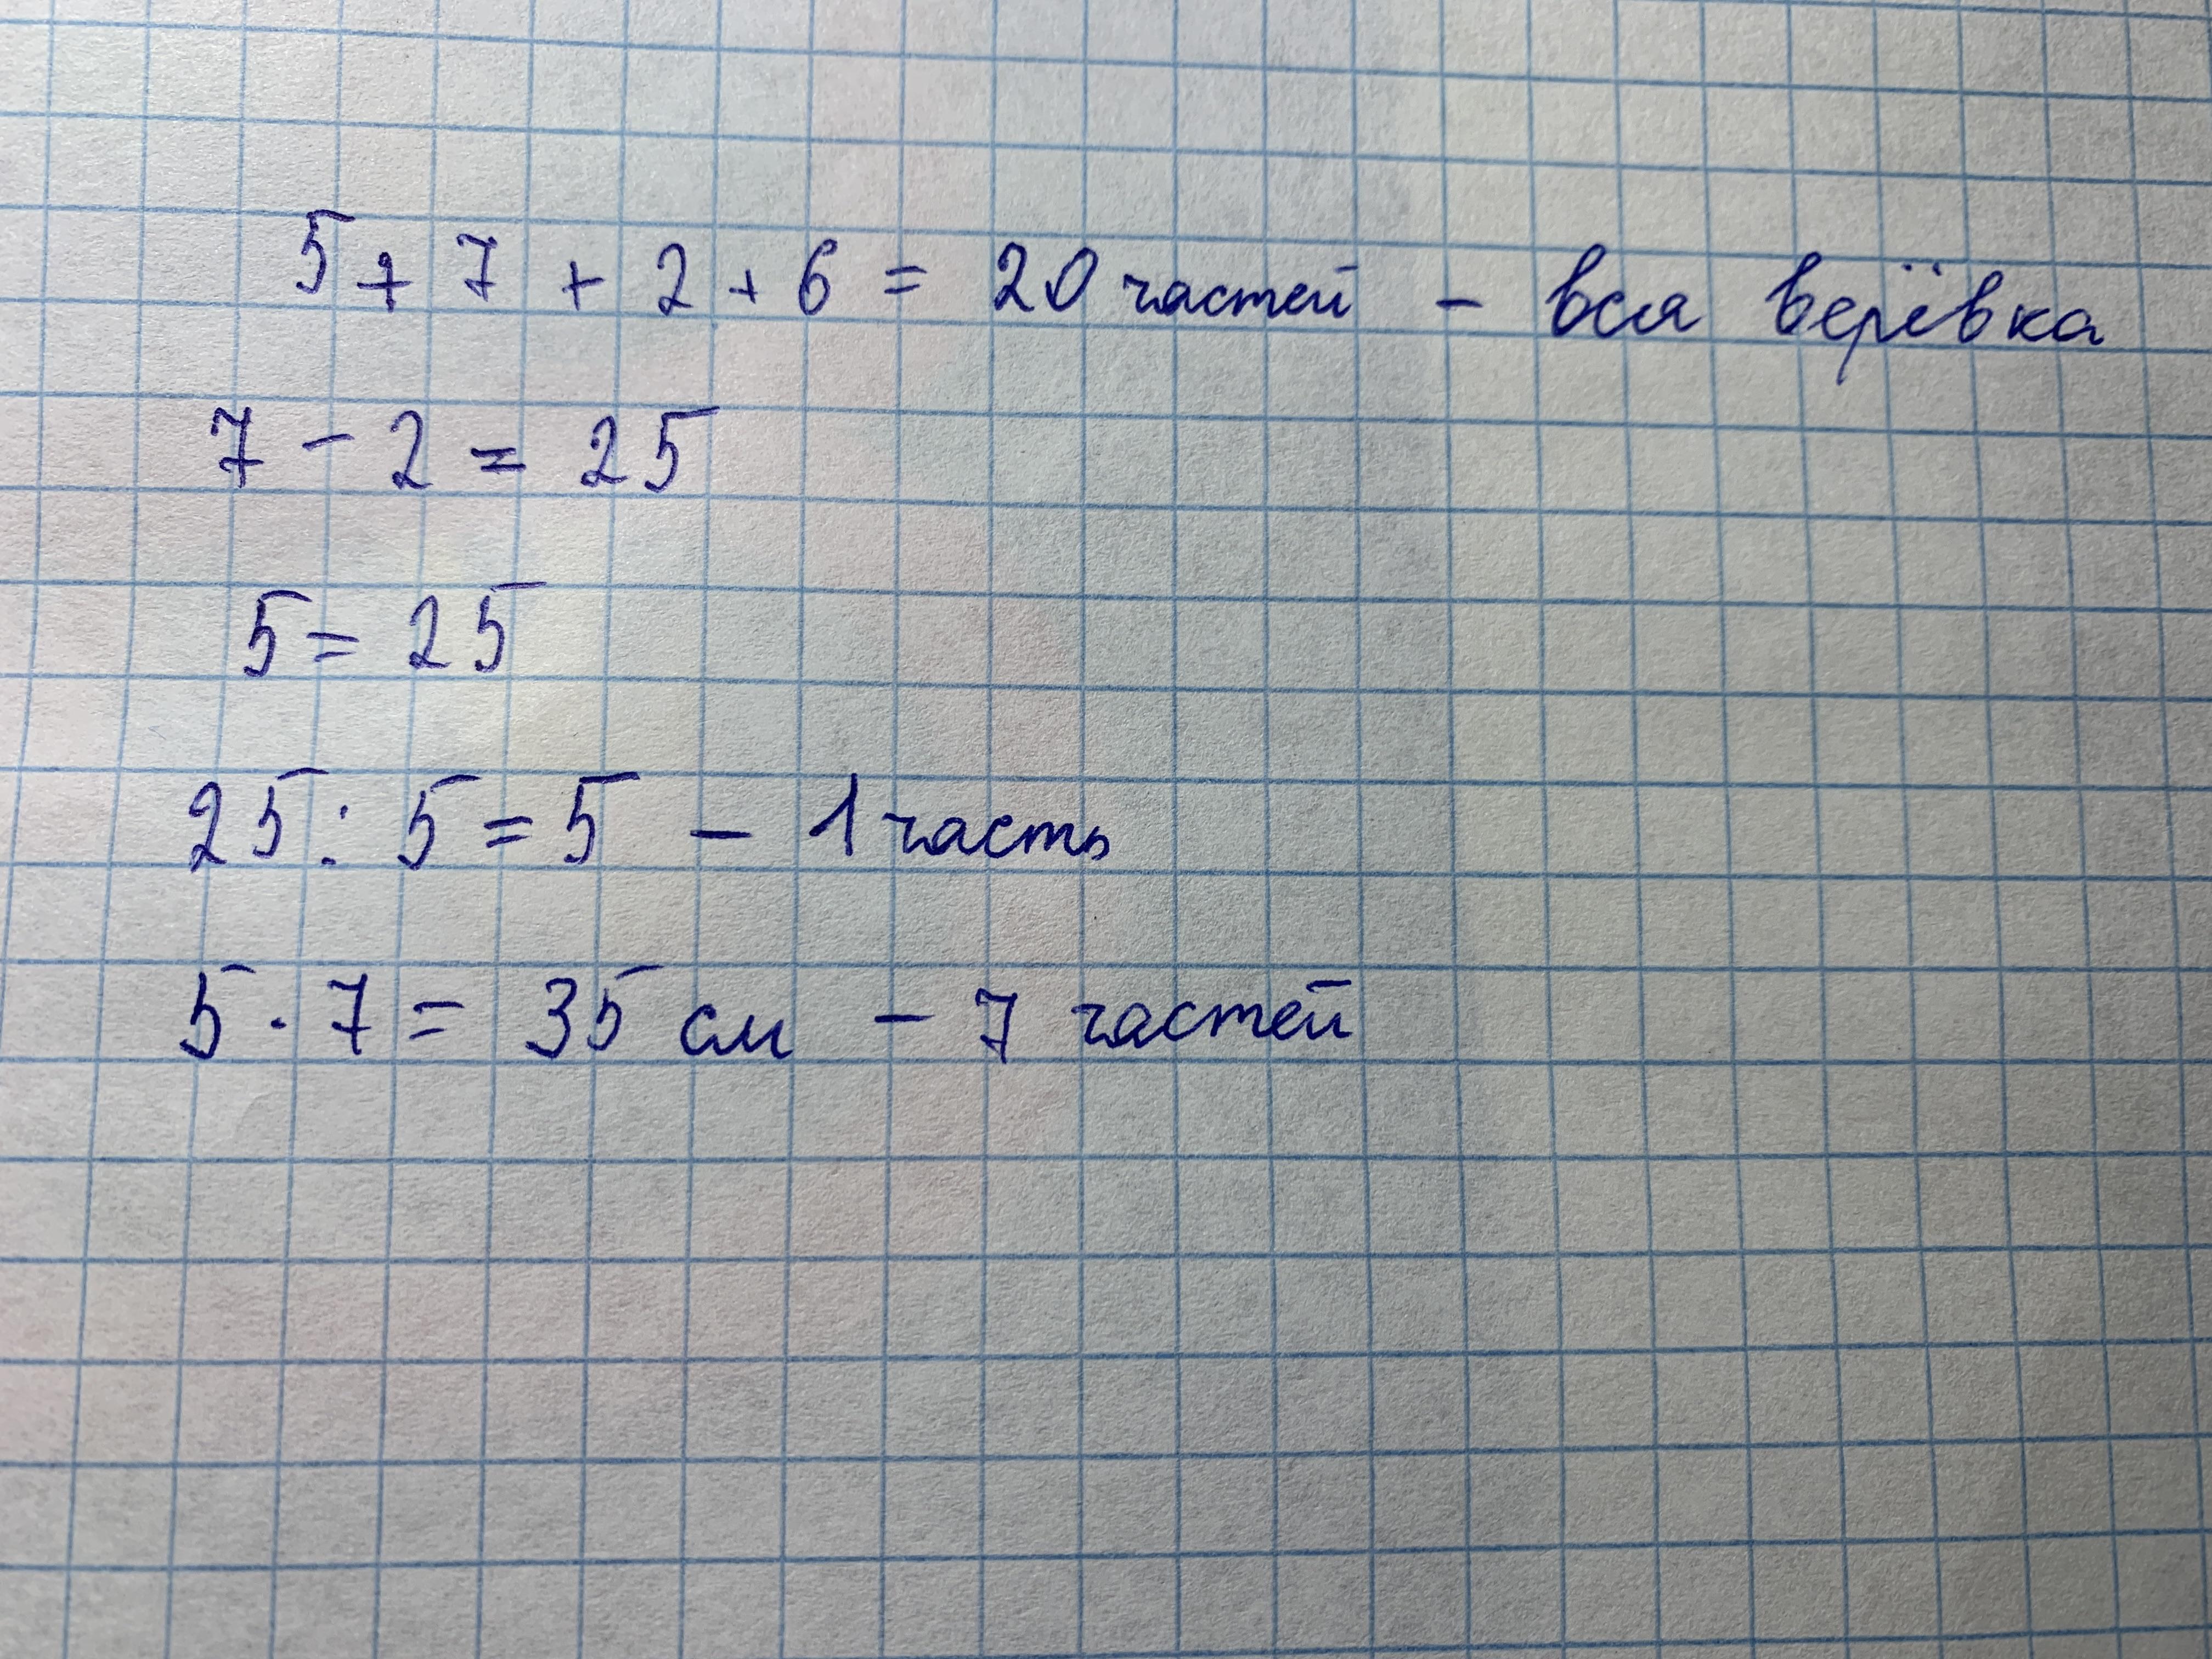 5 + 7 + 2 + 6 = 20 частей - вся верёвка
7 - 2 = 25
5 = 25
25 : 5 = 5 - 1 часть
5 · 7 = 35 см - 7 частей